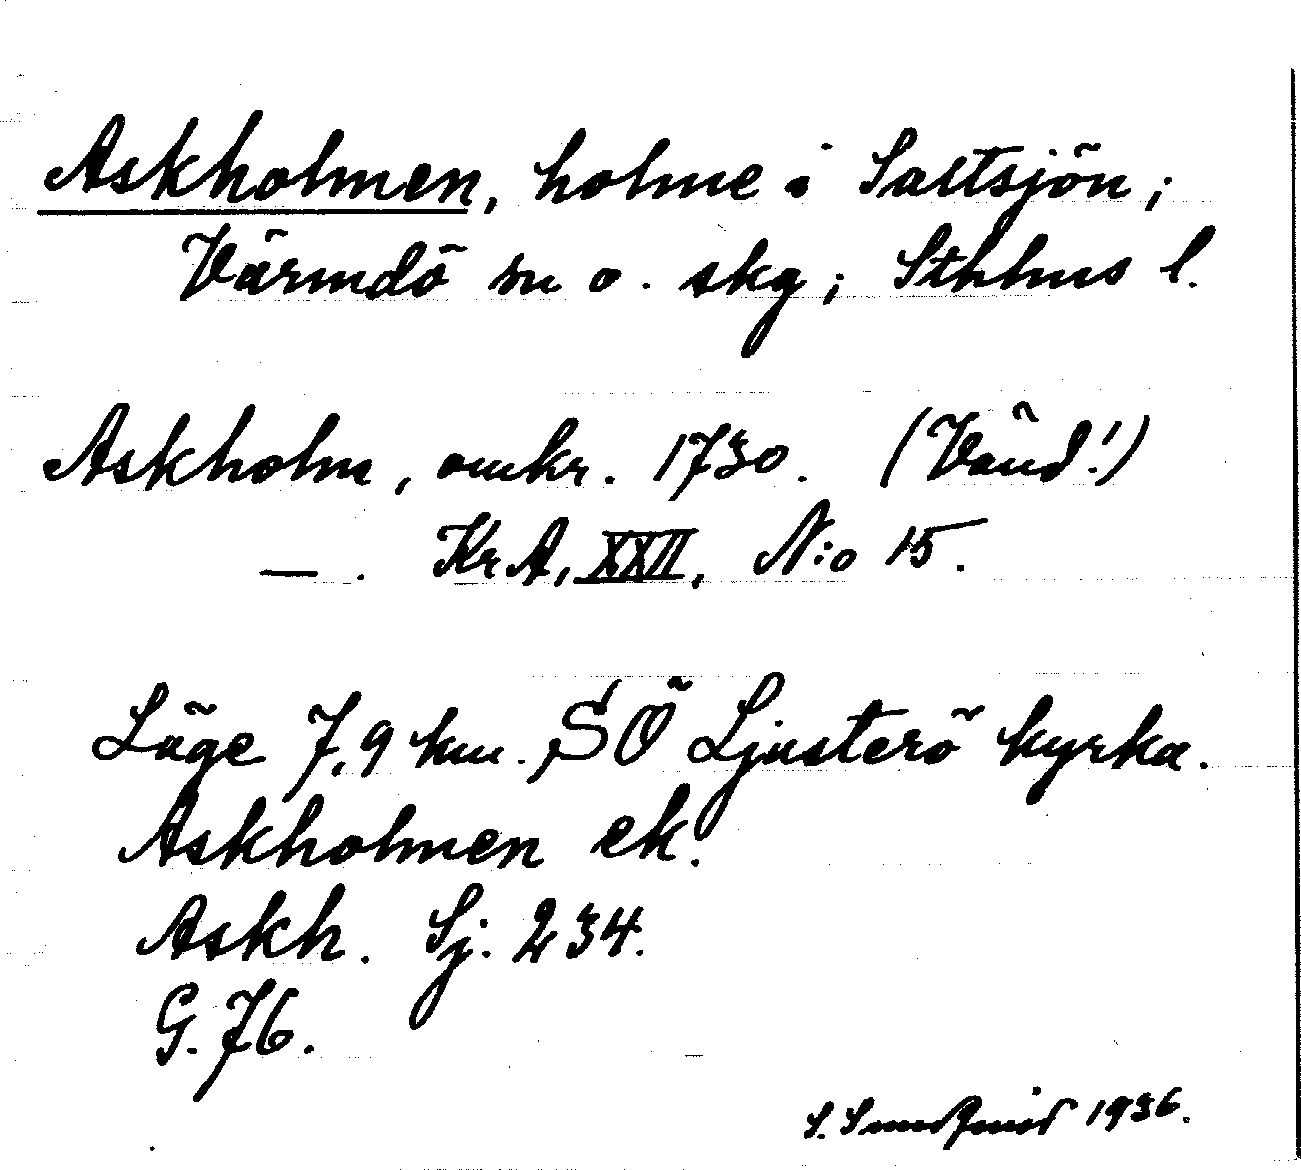 Askholmen, holme i Saltsjön;
Värmdö sn o. skg; Sthlms l.
Askholm, omkr. 1730. (Vänd!)
—. KrA, XXII, N:o 15.
Läge 7,9 km. SÖ Ljusterö kyrka.
Askholmen ek.
Askh. Sj. 234.
G. 76.
S. 1936.